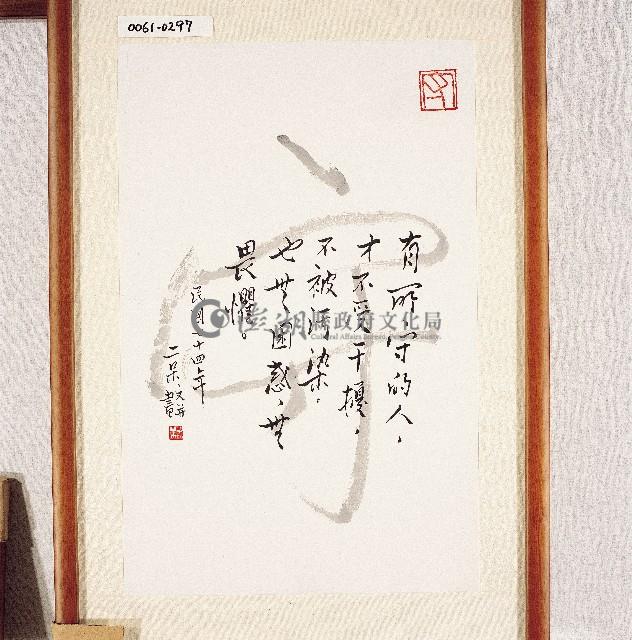 0061-0297
守
有所守的人，
才不受干擾，
不被污染，
也無困惑、無
畏懼。
民國 十四年
二呆 並書
澎湖縣政府文化局
Cultural Affairs Bureau, Penghu County.